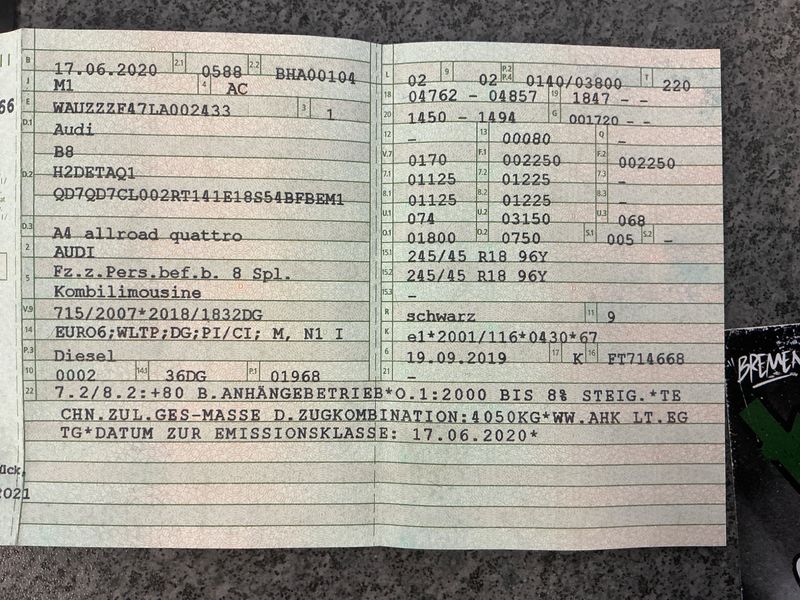 B 17.06.2020 2.1 0588 2.2 BHA00104
J M1 4 AC
E WAUZZZF47LA002433 3 1
D.1 Audi
B8
D.2 H2DETAQ1
QD7QD7CL002RT141E18S54BFBEM1
D.3 A4 allroad quattro
2 AUDI
5 Fz.z.Pers.bef.b. 8 Spl.
Kombilimousine
V.9 715/2007*2018/1832DG
14 EURO6;WLTP;DG;PI/CI; M, N1 I
P.3 Diesel
10 0002 14.1 36DG P.1 01968
L 02 9 02 P.2 P.4 0140/03800 T 220
18 04762 - 04857 19 1847 - -
20 1450 - 1494 G 001720 - -
12 - 13 00080 Q -
V.7 0170 F.1 002250 F.2 002250
7.1 01125 7.2 01225 7.3 -
8.1 01125 8.2 01225 8.3 -
U.1 074 U.2 03150 U.3 068
O.1 01800 O.2 0750 S.1 005 S.2 -
15.1 245/45 R18 96Y
15.2 245/45 R18 96Y
15.3 -
R schwarz 11 9
K e1*2001/116*0430*67
6 19.09.2019 17 K 16 FT714668
21 -
22 7.2/8.2:+80 B.ANHÄNGEBETRIEB*O.1:2000 BIS 8% STEIG.*TE
CHN.ZUL.GES-MASSE D.ZUGKOMBINATION:4050KG*WW.AHK LT.EG
TG*DATUM ZUR EMISSIONSKLASSE: 17.06.2020*
66
ück
2021
"BREMEN